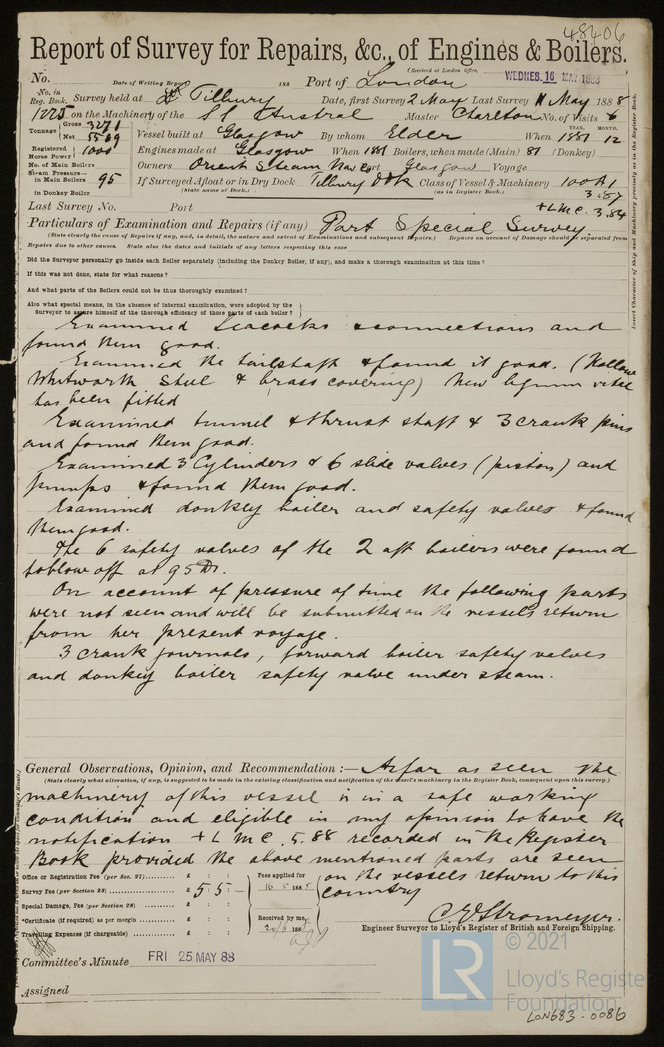 48406
Report of Survey for Repairs, &c., of Engines & Boilers.
(Received at London Office,
WEDNES. 16 MAY 1888
No. Date of Writing Report 188 Port of London
No. in Reg. Book. Survey held at Tilbury Date, first Survey 2 May Last Survey 11 May 1888
1225 on the Machinery of the SS Austral Master Charlton No. of Visits 6
Tonnage Gross
Net 5589
Vessel built at Glasgow By whom Elder When YEAR. 1881 MONTH. 12
Registered Horse Power 1000 Engines made at Glasgow When 1881 Boilers, when made (Main) 81 (Donkey)
No. of Main Boilers Owners Orient Steam Nav Co Port Glasgow Voyage
Steam Pressure— in Main Boilers 95 If Surveyed Afloat or in Dry Dock Tilbury Dock Class of Vessel & Machinery 100A1
(State name of Dock.) (as in Register Book.) 3.87
in Donkey Boiler
Last Survey No. Port +LMC. 3.84
Particulars of Examination and Repairs (if any) Part Special Survey.
(State clearly the cause of Repairs if any, and, in detail, the nature and extent of Examinations and subsequent Repairs.) Repairs on account of Damage should be separated from
Repairs due to other causes. State also the dates and initials of any letters respecting this case
Insert Character of Ship and Machinery precisely as in the Register Book.
Did the Surveyor personally go inside each Boiler separately (including the Donkey Boiler, if any), and make a thorough examination at this time?
If this was not done, state for what reasons?
And what parts of the Boilers could not be thus thoroughly examined?
Also what special means, in the absence of internal examination, were adopted by the
Surveyor to assure himself of the thorough efficiency of those parts of each boiler?
Examined Seacocks & connections and
found them good.
Examined the tailshaft & found it good. (Hollow
Whitworth Steel & brass covering) New lignum vitae
has been fitted
Examined tunnel & thrust shaft & 3 crank pins
and found them good.
Examined 3 Cylinders & 6 slide valves (piston) and
pumps & found them good.
Examined donkey boiler and safety valves & found
them good.
The 6 safety valves of the 2 aft boilers were found
to blow off at 95 lbs.
On account of pressure of time the following parts
were not seen and will be submitted on the vessels return
from her present voyage.
3 crank journals, forward boiler safety valves
and donkey boiler safety valve under steam.
General Observations, Opinion, and Recommendation:— As far as seen the
(State clearly what alteration, if any, is suggested to be made in the existing classification and notification of the vessel's machinery in the Register Book, consequent upon this survey.)
machinery of this vessel is in a safe working
condition and eligible in my opinion to have the
notification +LMC. 5.88 recorded in the Register
Book provided the above mentioned parts are seen
on the vessels return to this
country
Office or Registration Fee (per Sec. 27) £ : :
Survey Fee (per Section 28) £ 5 : 5 : –
Special Damage, Fee (per Section 29) £ : :
*Certificate (if required) as per margin £ : :
Travelling Expenses (if chargeable) £ : :
Fees applied for
16 5 1888
Received by me,
188
C. E. Stromeyer.
Engineer Surveyor to Lloyd's Register of British and Foreign Shipping.
Committee's Minute FRI 25 MAY 88
Assigned
LR © 2021
Lloyd's Register
Foundation
LON683-0086